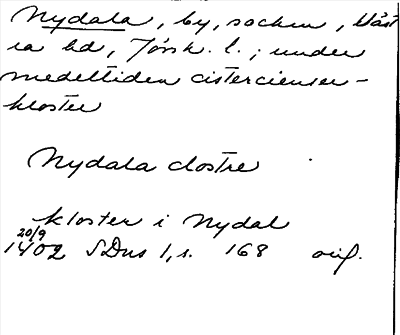 Nydala, by, socken, Väst
ra hd, Jönk. l.; under
medeltiden cistercienser-
kloster
Nydala clostre
kloster i Nydal
20/9
1402 SDns 1, s. 168 orig.